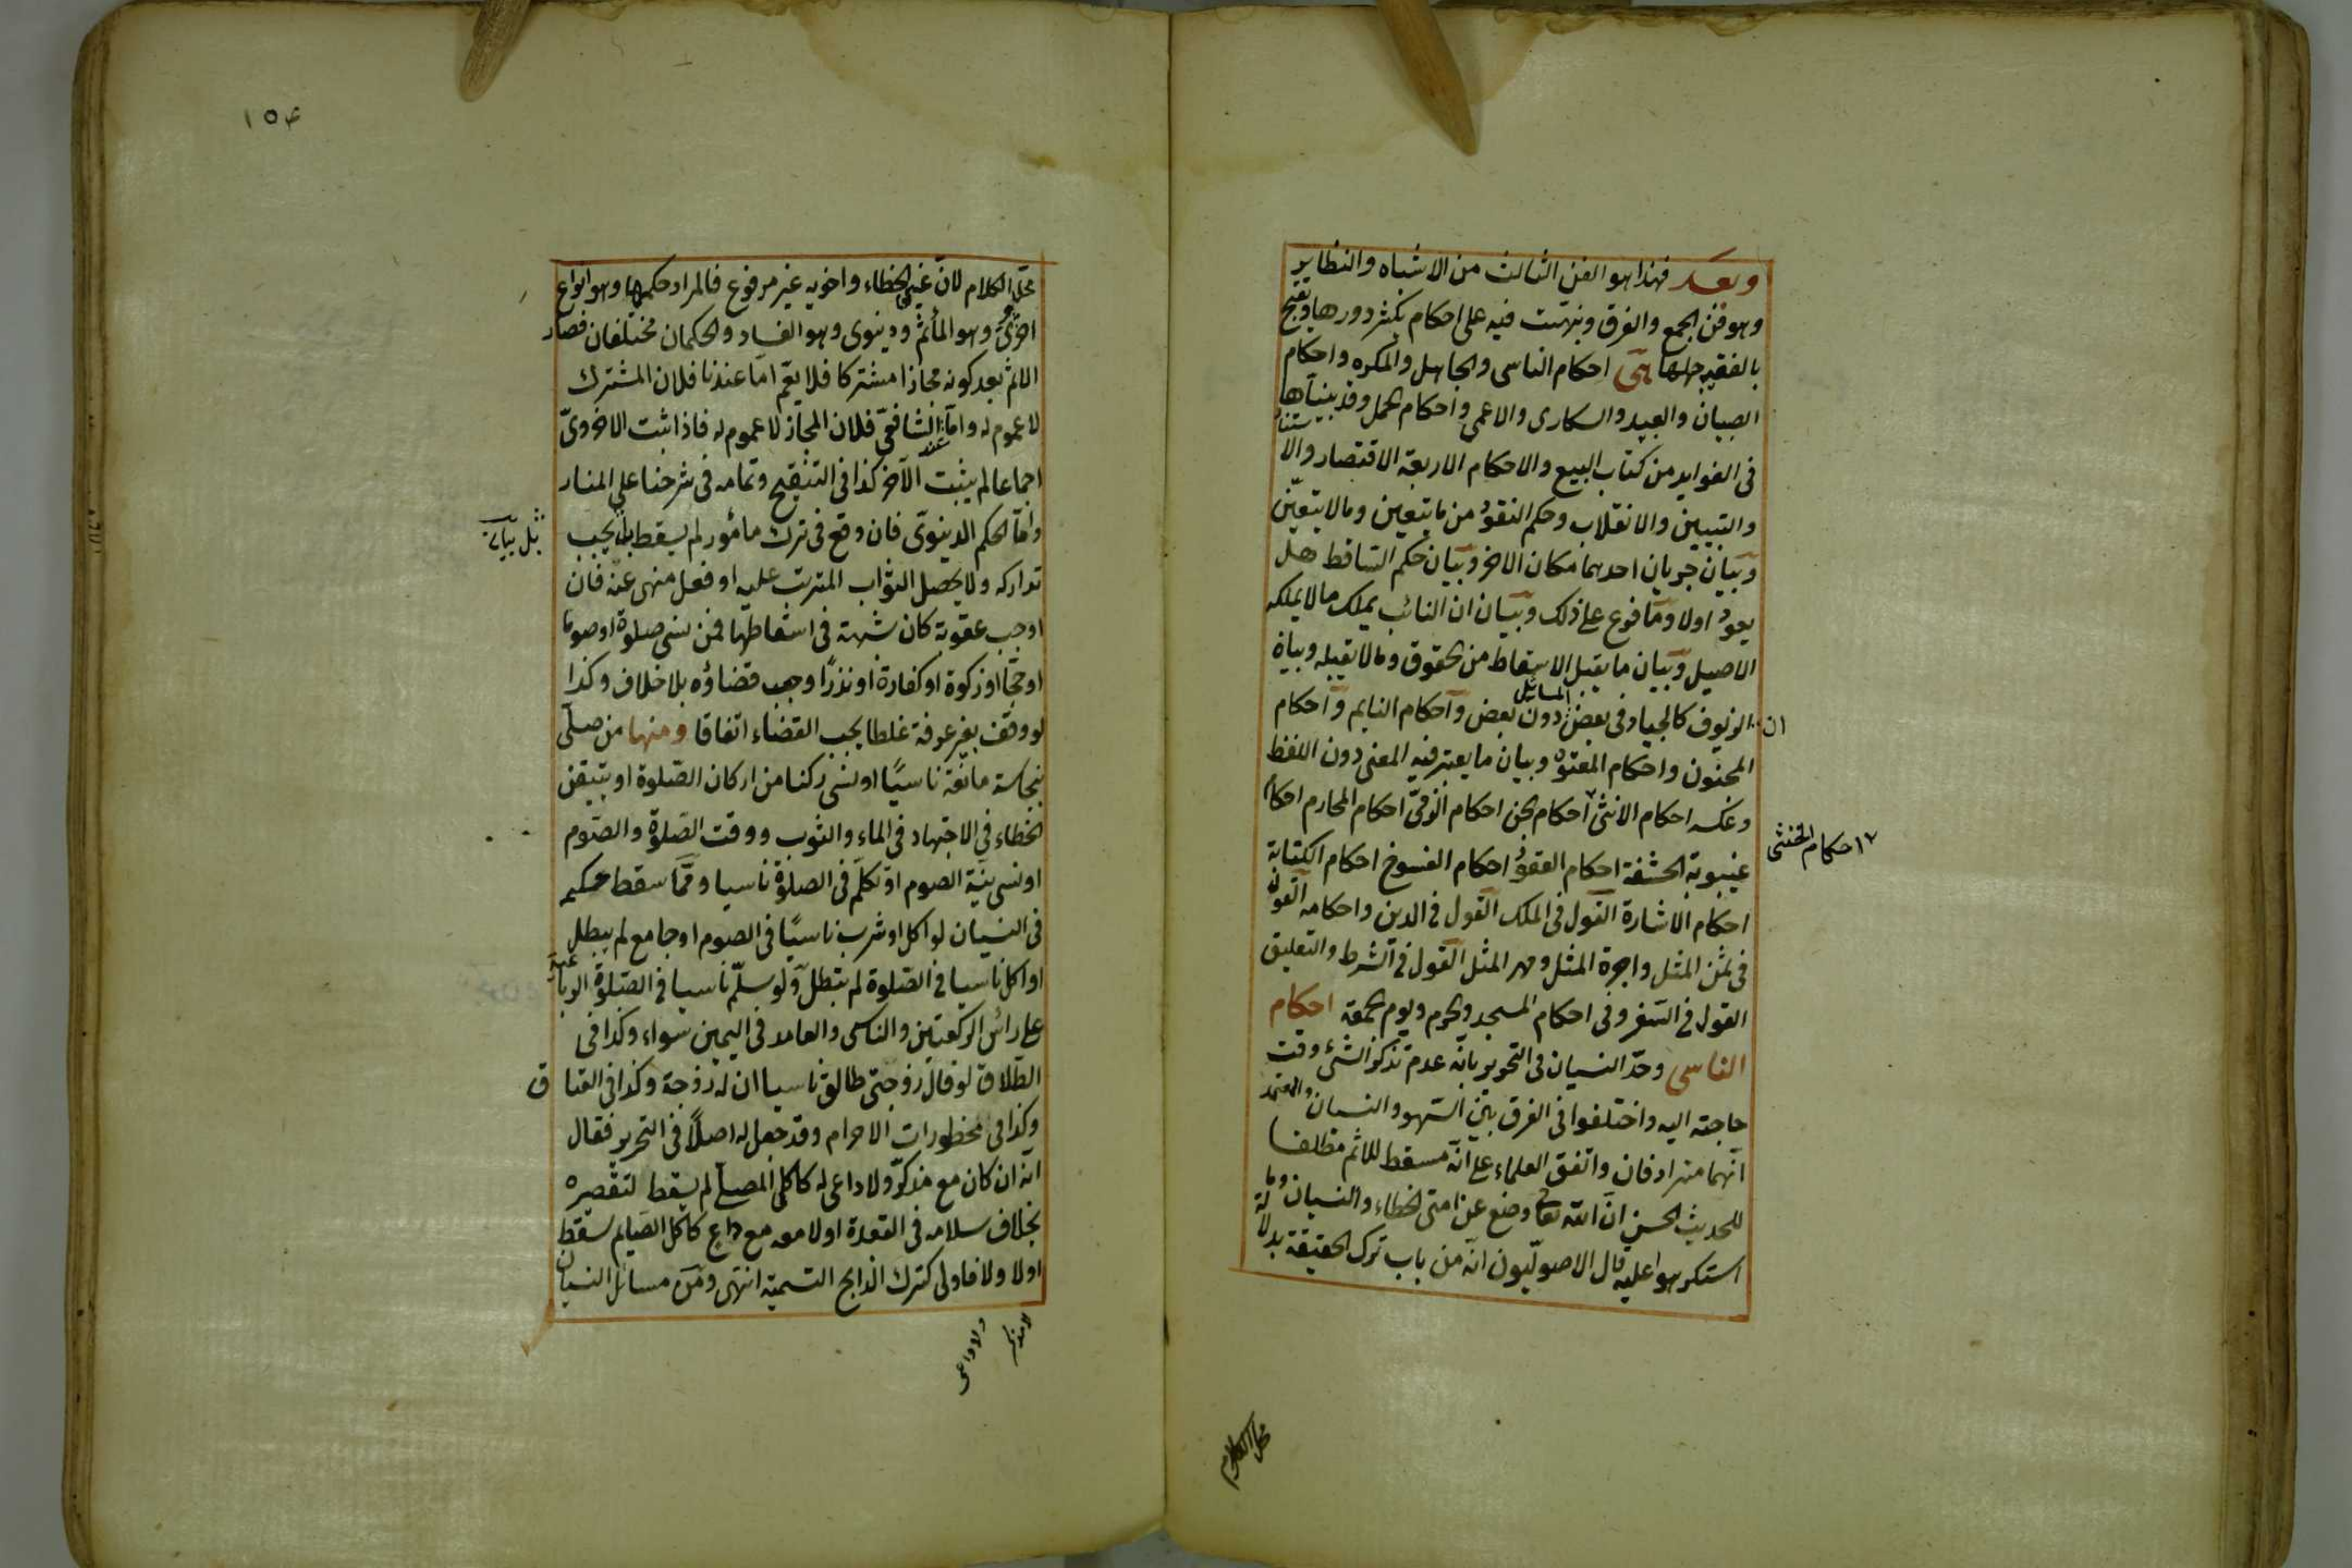 وبعد فهذا هو الفن الثالث من الاشباه والنظاير
وهو فن الجمع والفرق ونبهت فيه على احكام يكثر دورها ويقبح
بالفقيه جهلها هى احكام الناسى والجاهل والمكره واحكام
الصبيان والعبيد والسكارى والاعمى واحكام الحمل وقد بيناها
فى الفوايد من كتاب البيع والاحكام الاربعة الاقتصار والاستناد
والتبيين والانقلاب وحكم النقود من ما يتعين ومالا يتعين
وبيان جريان احدهما مكان الاخر وبيان حكم الساقط هل
يعود اولا وما فرع على ذلك وبيان ان النائب يملك مالا يملكه
الاصيل وبيان ما يقبل الاسقاط من الحقوق ومالا يقبله وبيان
ان الزيوف كالجياد فى بعض المسايل دون بعض واحكام النايم واحكام
المجنون واحكام المعتوه وبيان ما يعتبر فيه المعنى دون اللفظ
وعكسه احكام الانثى احكام الجن احكام الذمى احكام المحارم احكام
احكام الخنثى
غيبوبة الحشفة احكام العقود احكام الفسوخ احكام الكتابة
احكام الاشارة القول فى الملك القول فى الدين واحكامه القول
فى ثمن المثل واجرة المثل ومهر المثل القول فى الشرط والتعليق
القول فى السفر وفى احكام المسجد والحرم ويوم الجمعة احكام
الناسى وحد النسيان فى التحرير بانه عدم تذكر الشئ وقت
حاجته اليه واختلفوا فى الفرق بين السهو والنسيان والمعتمد
انهما مترادفان واتفق العلماء على انه مسقط للاثم مطلقا
للحديث الحسن ان الله تعالى وضع عن امتى الخطاء والنسيان وما
استكرهوا عليه قال الاصوليون انه من باب ترك الحقيقة بدلالة
محل الكلام
١٥٤
محل الكلام لان عين الخطاء واخويه غير مرفوع فالمراد حكمها وهو انواع
اخروى وهو المأثم ودينوى وهو الفساد والحكمان مختلفان فصار
الاثم بعد كونه مجازا مشتركا فلا يعم اما عندنا فلان المشترك
لا عموم له واما عند الشافعى فلان المجاز لا عموم له فاذا ثبت الاخروى
اجماعا لم يثبت الآخر كذا فى التنقيح وتمامه فى شرحنا على المنار
واما الحكم الدينوى فان وقع فى ترك مأمور لم يسقط بل يجب
تداركه ولا يحصل الثواب المترتب عليه او فعل منهى عنه فان
اوجب عقوبة كان شبهة فى اسقاطها فمن نسى صلوة او صوما
او حجا او زكوة او كفارة او نذرا وجب قضاؤه بلا خلاف وكذا
لو وقف بغير عرفة غلطا يجب القضاء اتفاقا ومنها من صلى
بنجاسة مانعة ناسيا او نسى ركنا من اركان الصلوة او بتيقن
الخطاء فى الاجتهاد فى الماء والثوب ووقت الصلوة والصوم
او نسى نية الصوم او تكلم فى الصلوة ناسيا ومما سقط حكمه
فى النسيان لو اكل او شرب ناسيا فى الصوم او جامع لم يبطل
او اكل ناسيا فى الصلوة لم تبطل ولو سلم ناسيا فى الصلوة الرباعية
على راس الركعتين والناسى والعامد فى اليمين سواء وكذا فى
الطلاق لو قال زوجتى طالق ناسيا ان له زوجة وكذا فى العتاق
وكذا فى محظورات الاحرام وقد جعل له اصلا فى التحرير فقال
انه ان كان مع مذكر ولا داعى له كاكل المصلى لم يسقط لتقصيره
بخلاف سلامه فى القعدة اولا معه مع داع كاكل الصايم سقط
اولا ولا فاولى كترك الذابح التسمية انتهى ومن مسائل النسيان
لا مذكر
ولا داعى